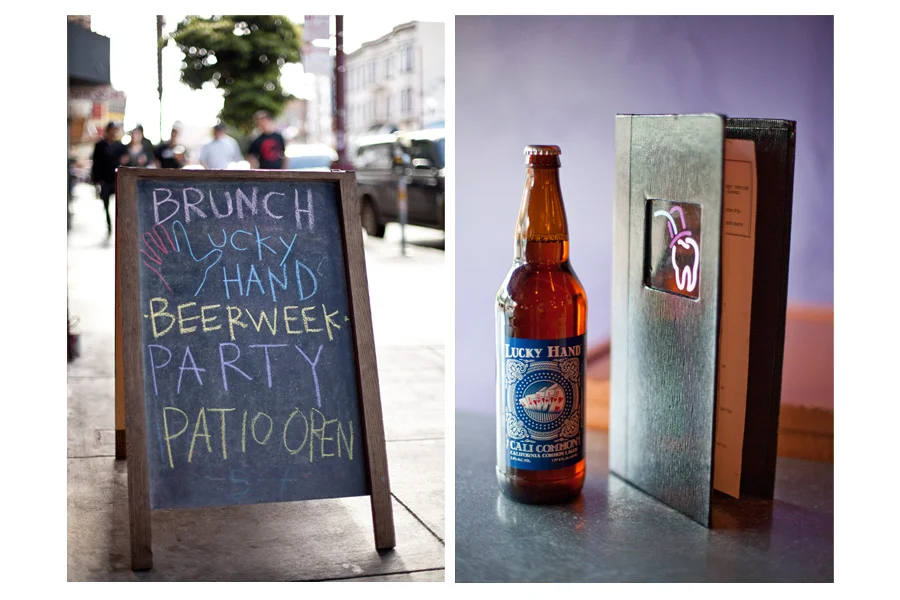 BRUNCH
LUCKY
HAND
BEERWEEK
PARTY
PATIO OPEN
LUCKY HAND
CALI COMMON
CALIFORNIA COMMON LAGER